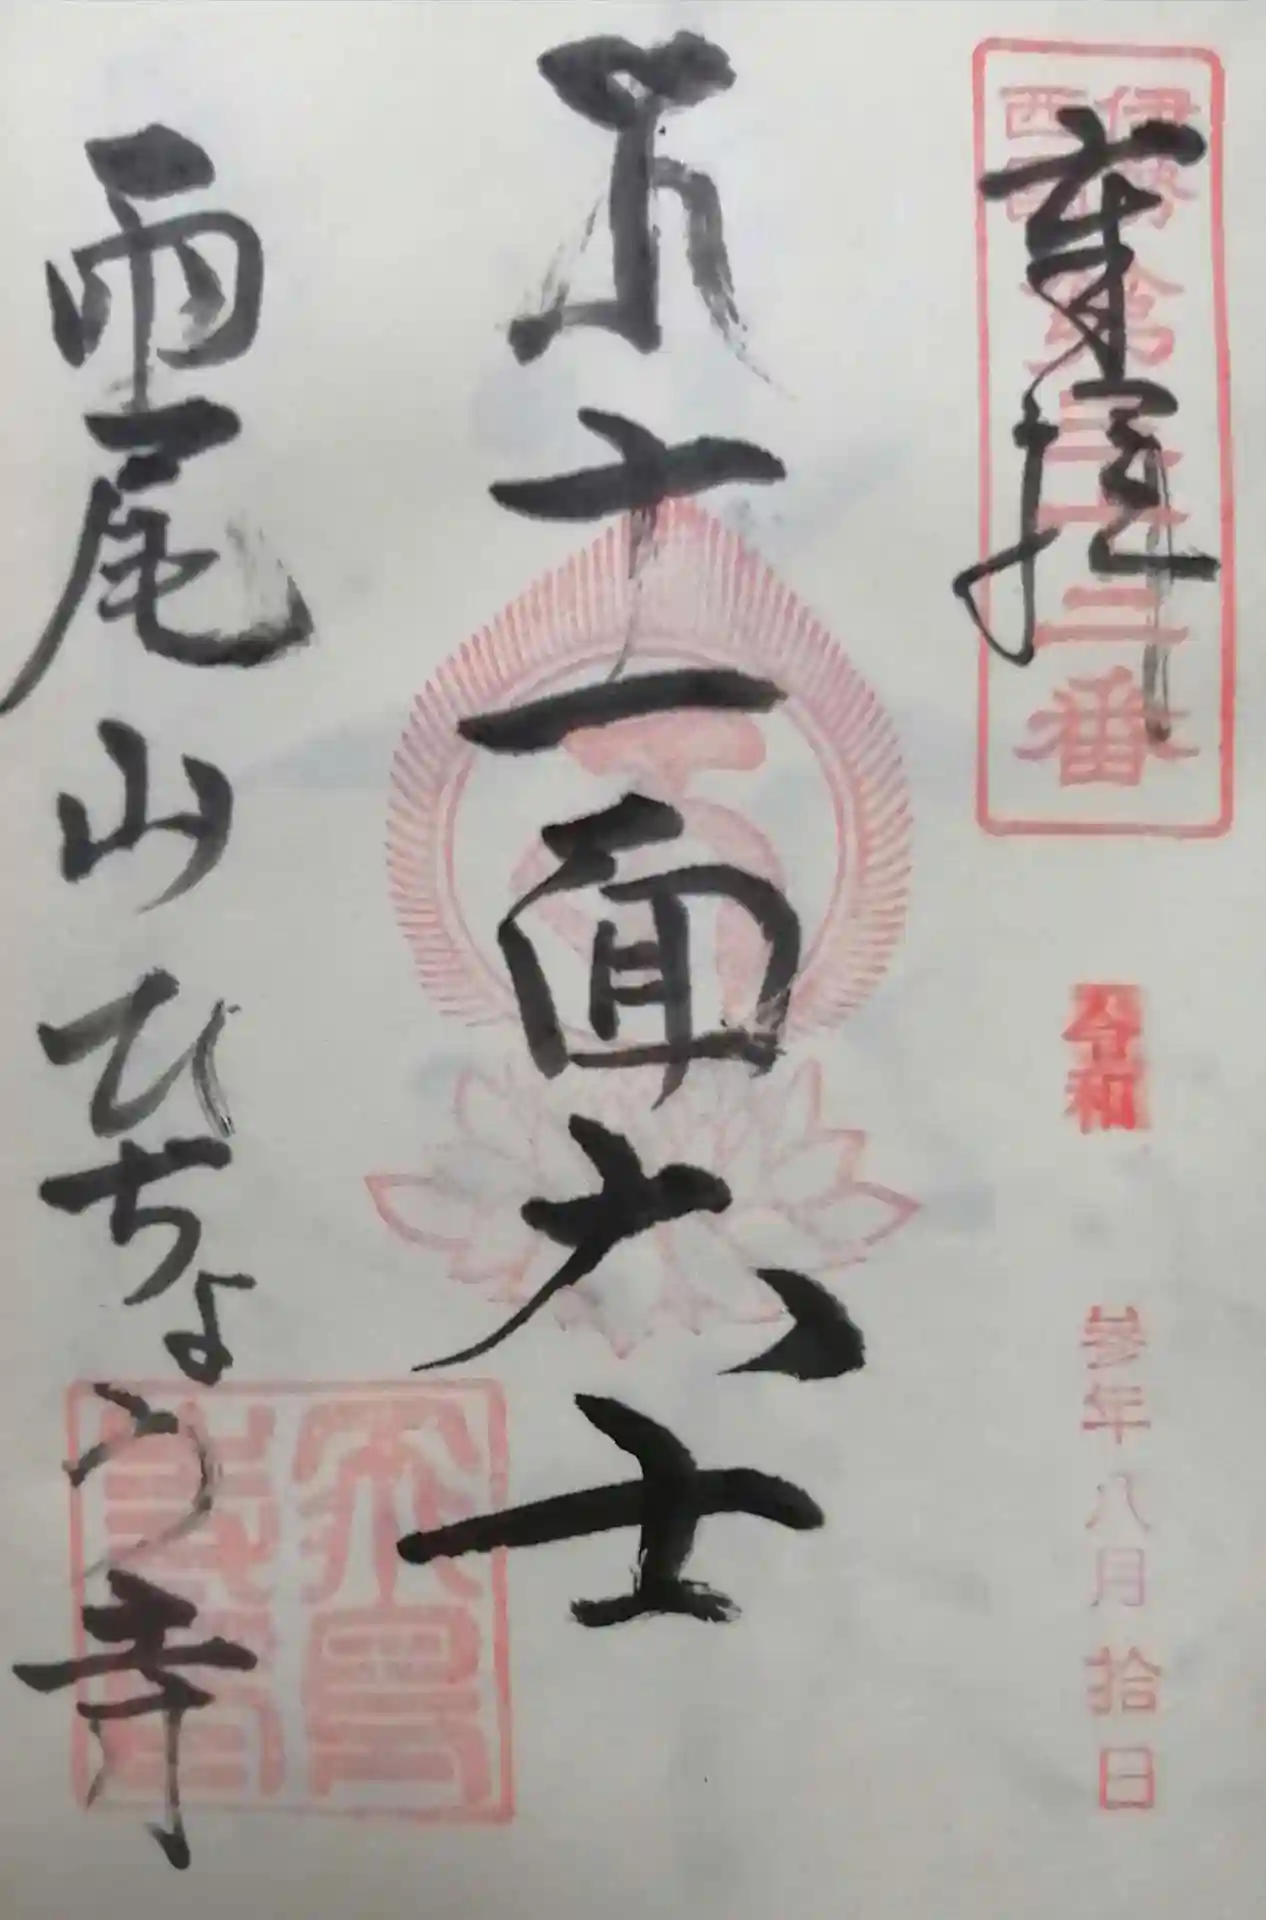 伊勢
西国
第三十二番
奉拝
令和
参年八月拾日
十一面大士
雨尾山ひちょう寺